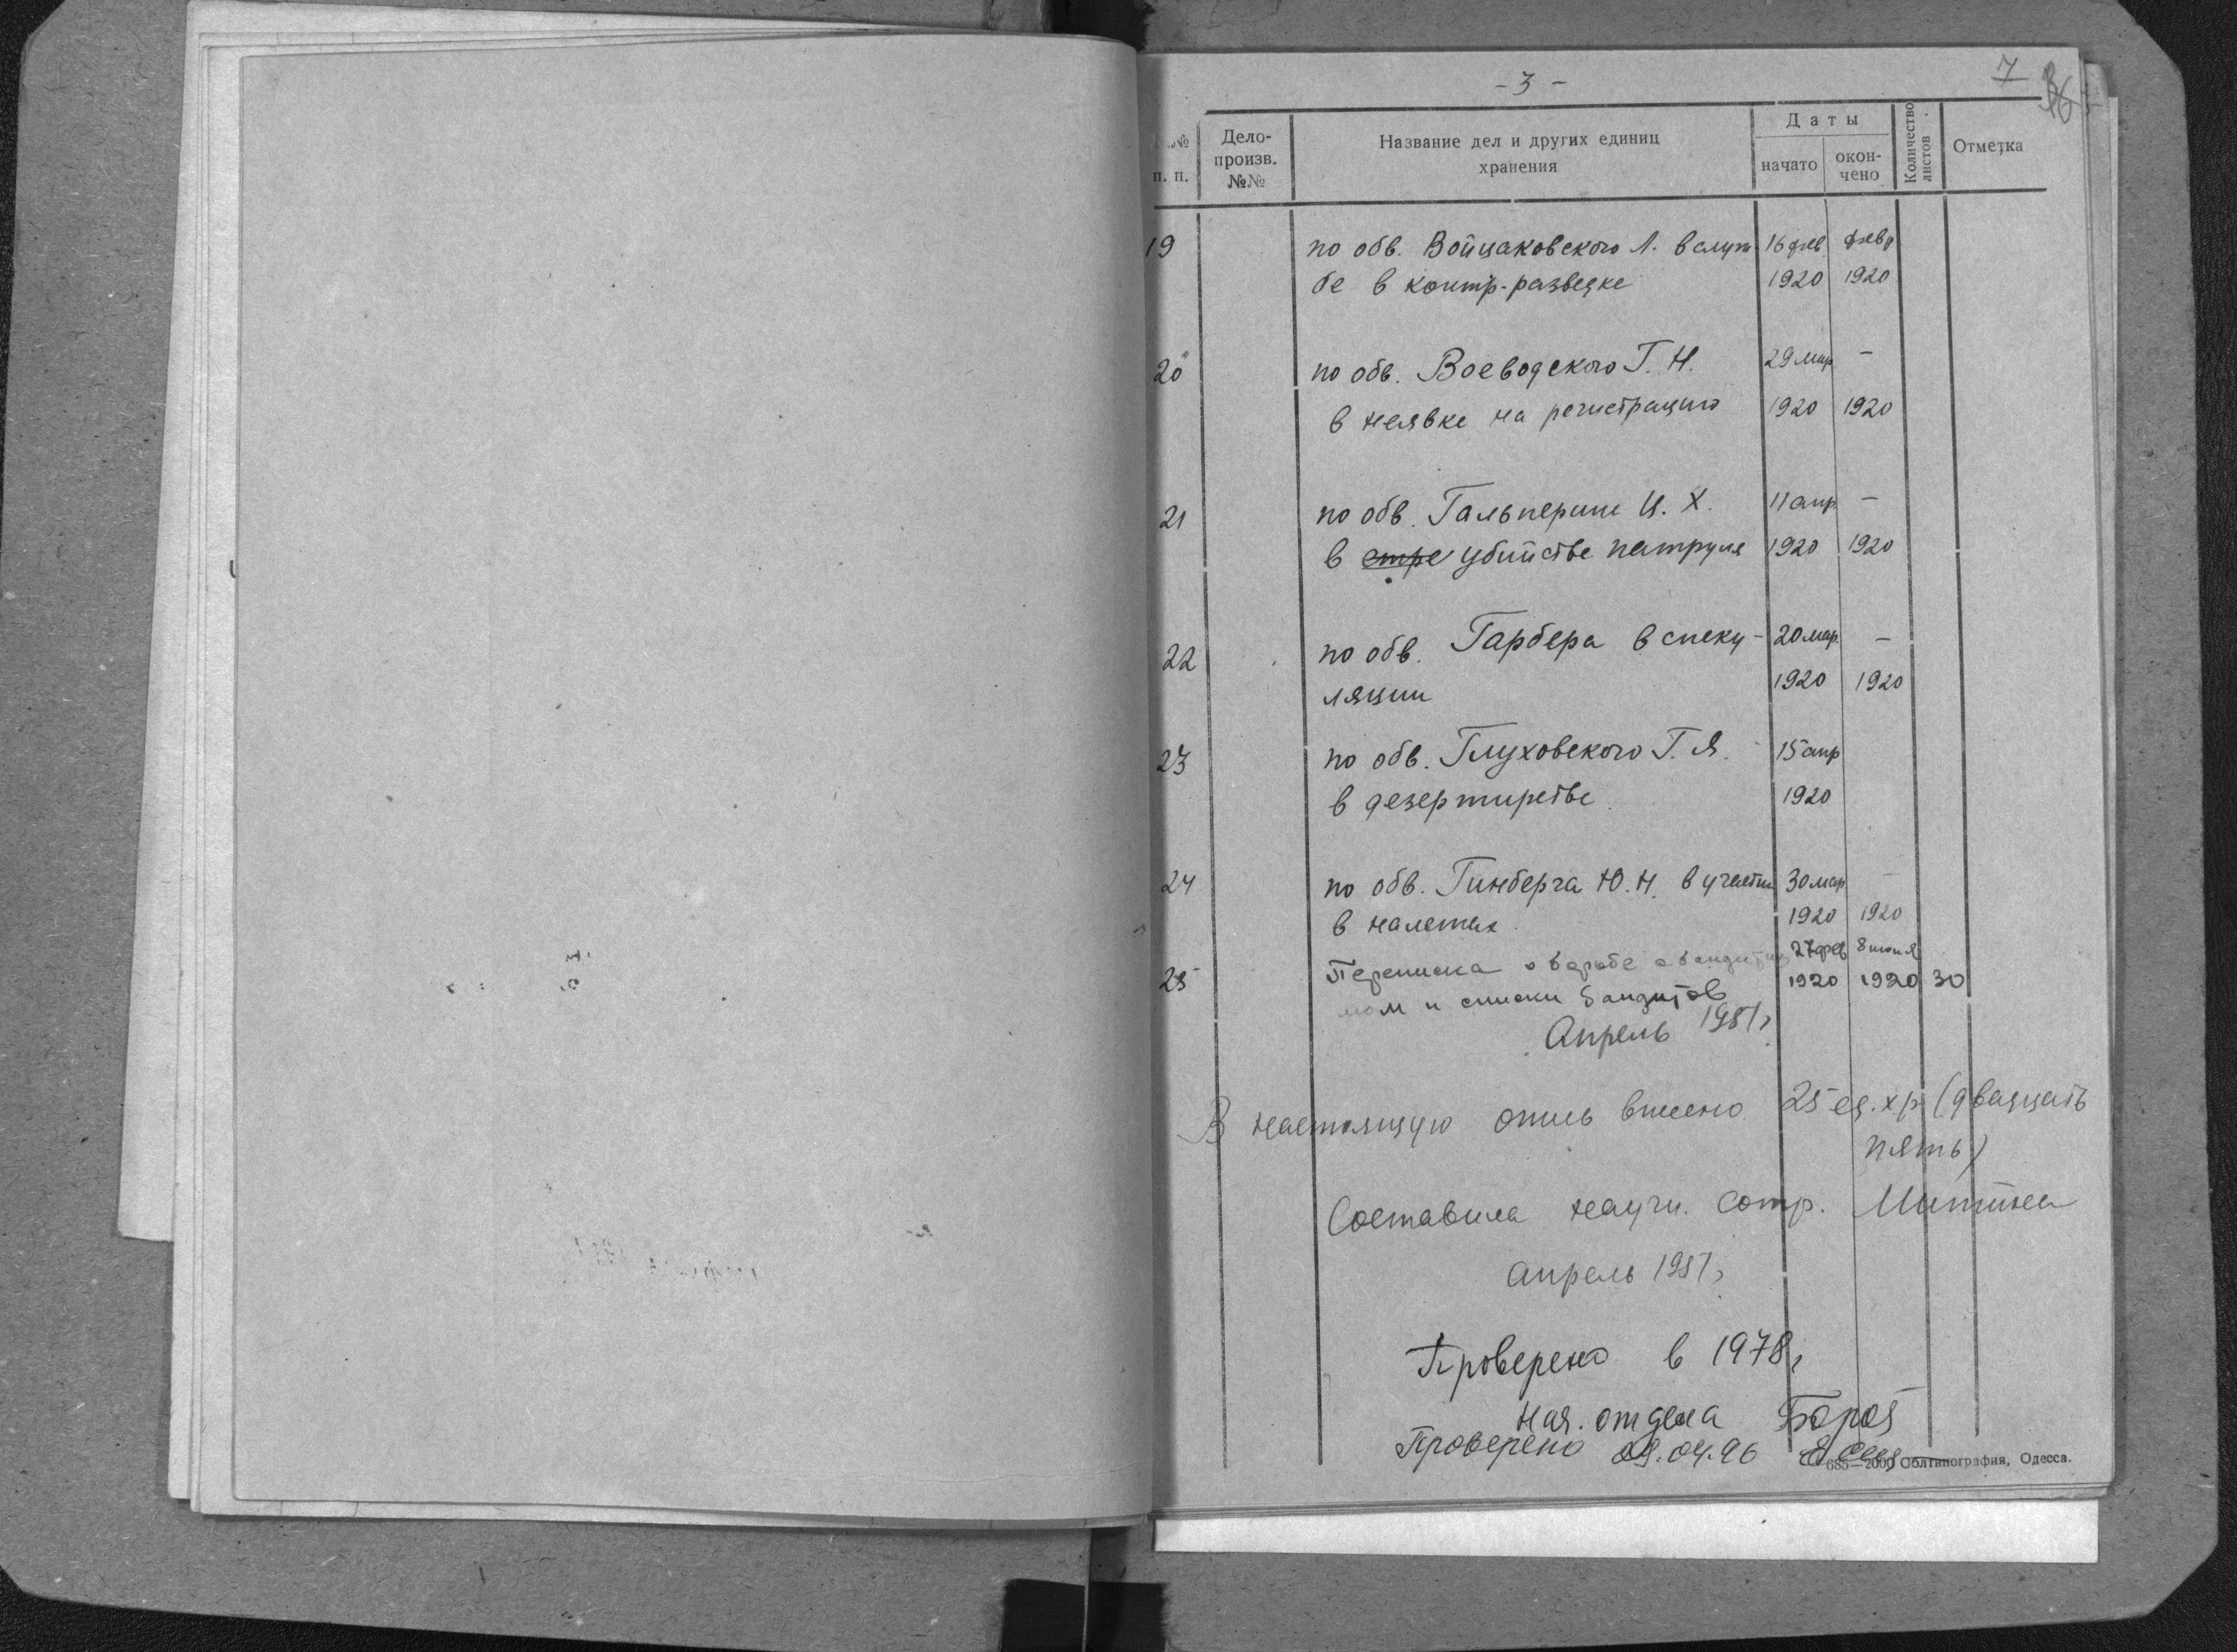 - 3 -
7
№ п. п.
Дело-произв. №№
Название дел и других единиц хранения
Даты
начато
окон-чено
Количество листов
Отметка
19 по обв. Войцаковского Л. в служ- 16 фев. февр
бе в контр-разведке 1920 1920
20 по обв. Воеводского Г. Н. 29 мар -
в неявке на регистрацию 1920 1920
21 по обв. Гальперин Ц. Х. 11 апр. -
в стре убийстве патруля 1920 1920
22 по обв. Гарбера в спеку- 20 мар. -
ляции 1920 1920
23 по обв. Глуховского Г. Я. 15 апр
в дезертирстве. 1920
24 по обв. Гинберга Ю. Н. в участии 30 мар -
в налетах. 1920 1920
27 фев 8 июня
25 Переписка о борьбе с бандитиз 1920 1920 30
мом и списки бандитов
Апрель 1951 г.
В настоящую опись внесено 25 ед. хр. (двадцать
пять)
Составила научн. сотр.
Апрель 1951 г.
Проверено в 1978 г
Нач. отдела
Проверено 09.04.96
685—2000 Облтипография, Одесса.